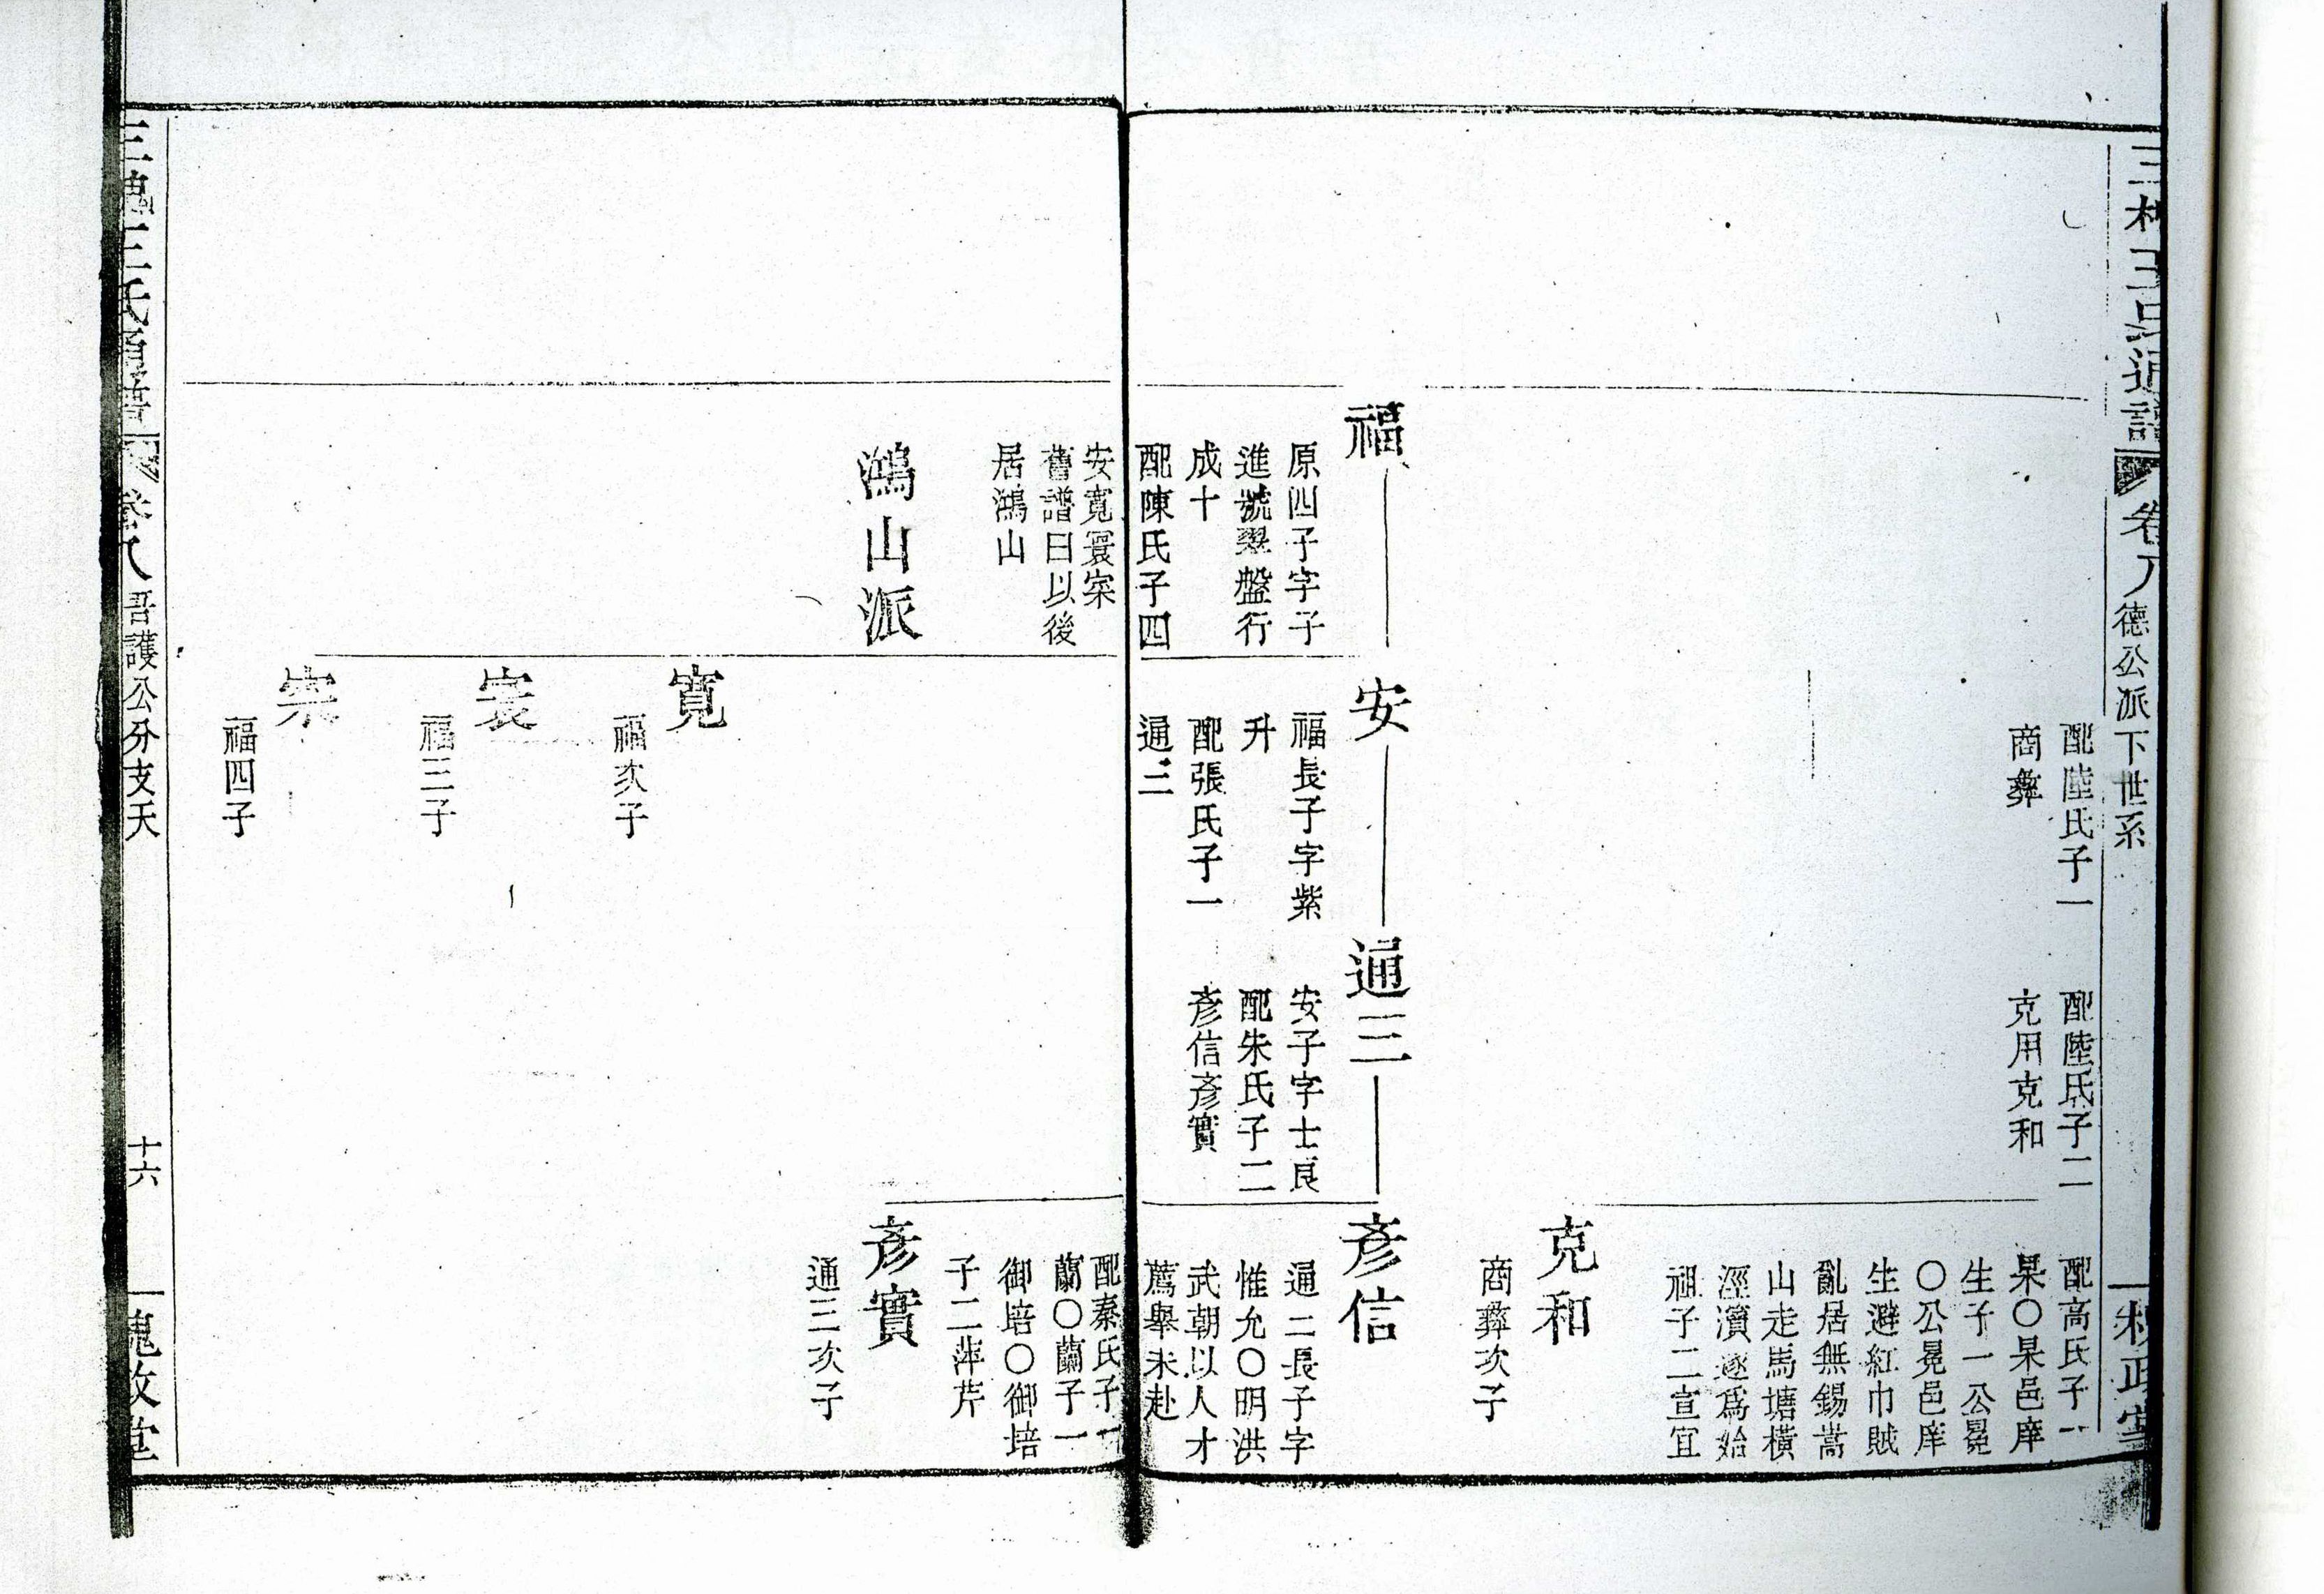 三槐王氏通譜
卷八
德公派下世系
槐政堂
配陸氏子一
商彝
配陸氏子二
克用克和
配高氏子一
杲〇杲邑庠
生子一公冕
〇公冕邑庠
生避紅巾賊
亂居無錫嵩
山走馬塘橫
涇瀆遂爲始
祖子二宣宜
克和
商彝次子
福
原四子字子
進號翠盤行
成十
配陳氏子四
安
福長子字紫
升
配張氏子一
通三
通三
安子字士良
配朱氏子二
彥信彥實
彥信
通三長子字
惟允〇明洪
武朝以人才
薦舉未赴
安寬寰寀
舊譜曰以後
居鴻山
鴻山派
配秦氏子一
蘭〇蘭子一
御培〇御培
子二萍芹
彥實
通三次子
寬
福次子
寰
福三子
寀
福四子
三槐王氏通譜
卷八
吾護公分支天
十六
槐政堂